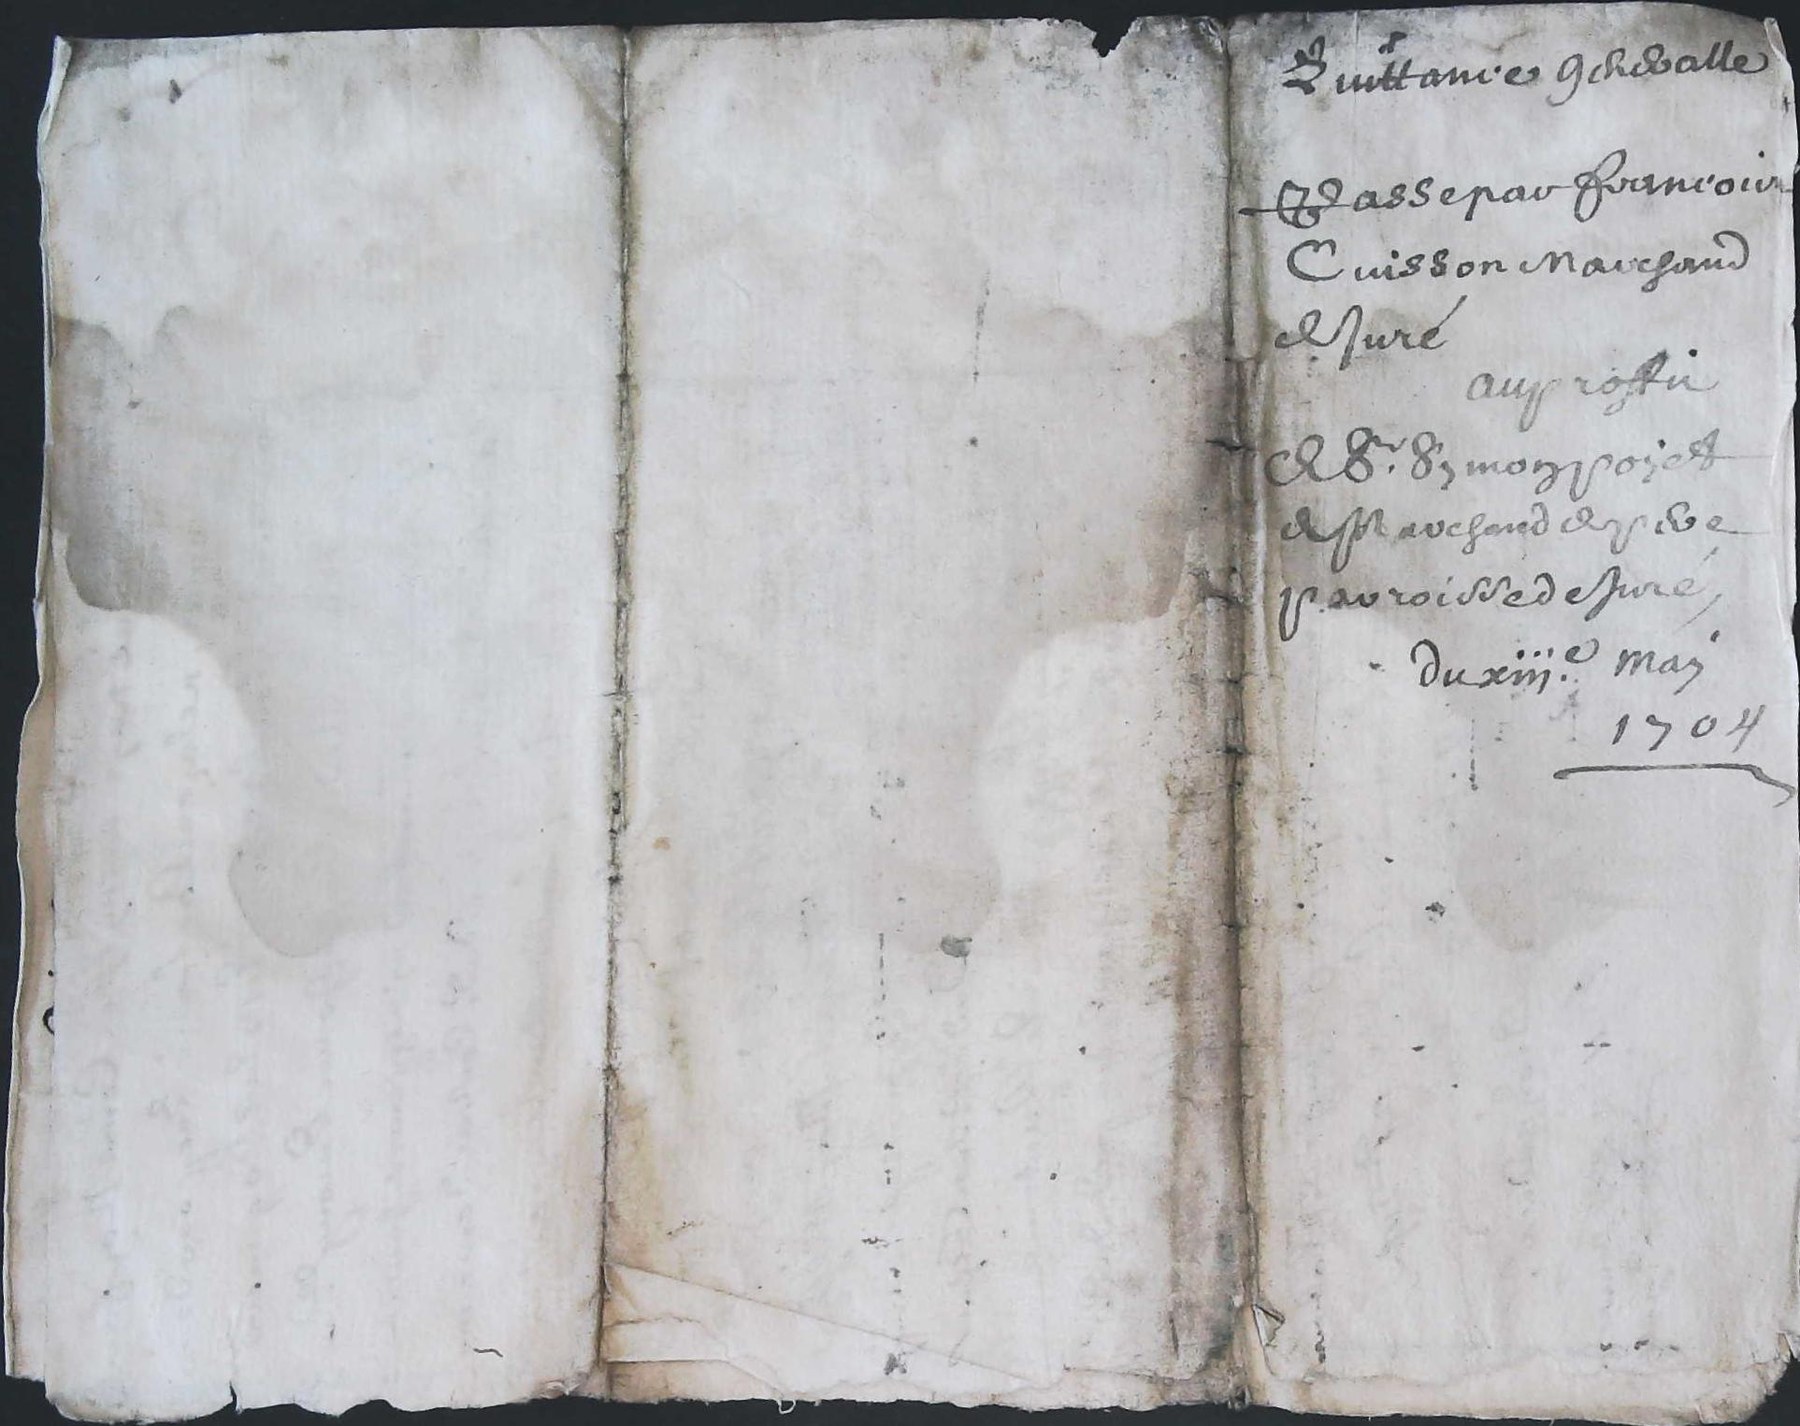 Quittance gñeralle
Passe par francois
Cuisson Marchand
de Juré
au proffit
de Sr. Symon poyet
Marchand de
parroisse de Juré,
du xiije. May
1704